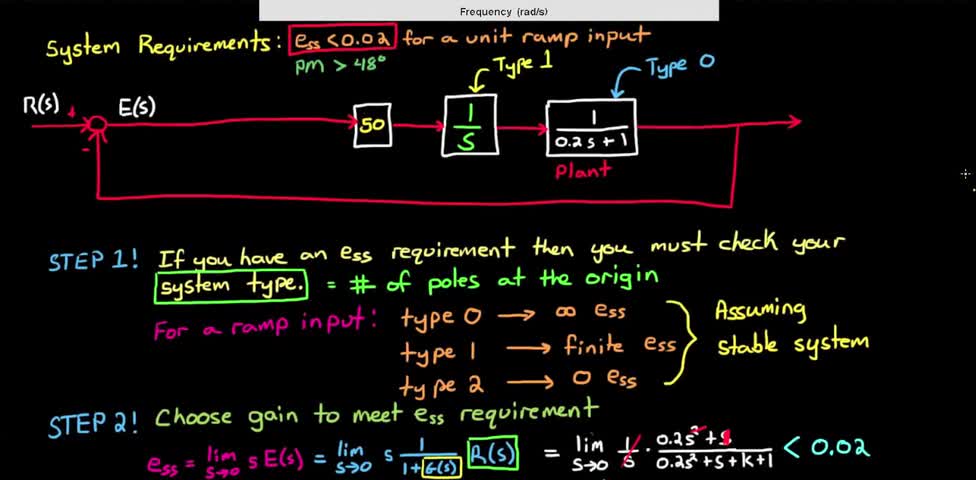 Frequency (rad/s)
System Requirements: ess < 0.02 for a unit ramp input
PM > 48°
Type 1
Type 0
R(s) + E(s)
50
1
s
1
0.2s + 1
-
Plant
STEP 1! If you have an ess requirement then you must check your
system type. = # of poles at the origin
For a ramp input: type 0 → ∞ ess
type 1 → finite ess
type 2 → 0 ess
Assuming
stable system
STEP 2! Choose gain to meet ess requirement
ess = lim s→0 s E(s) = lim s→0 s 1/(1+G(s)) R(s) = lim s→0 1/s · (0.2s²+s)/(0.2s²+s+k+1) < 0.02